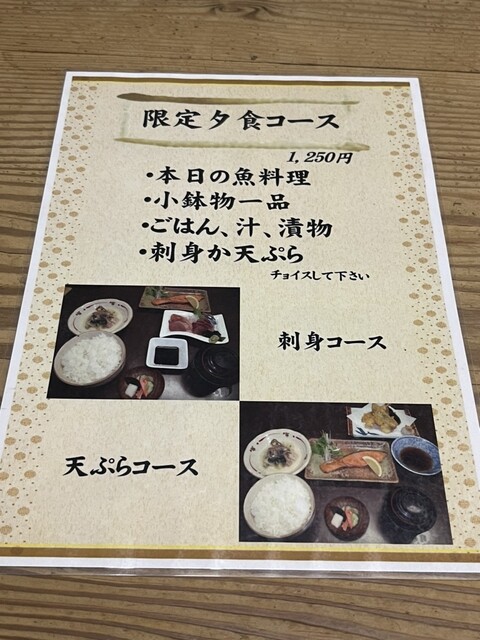 限定夕食コース
1,250円
・本日の魚料理
・小鉢物一品
・ごはん、汁、漬物
・刺身か天ぷら
チョイスして下さい
刺身コース
天ぷらコース